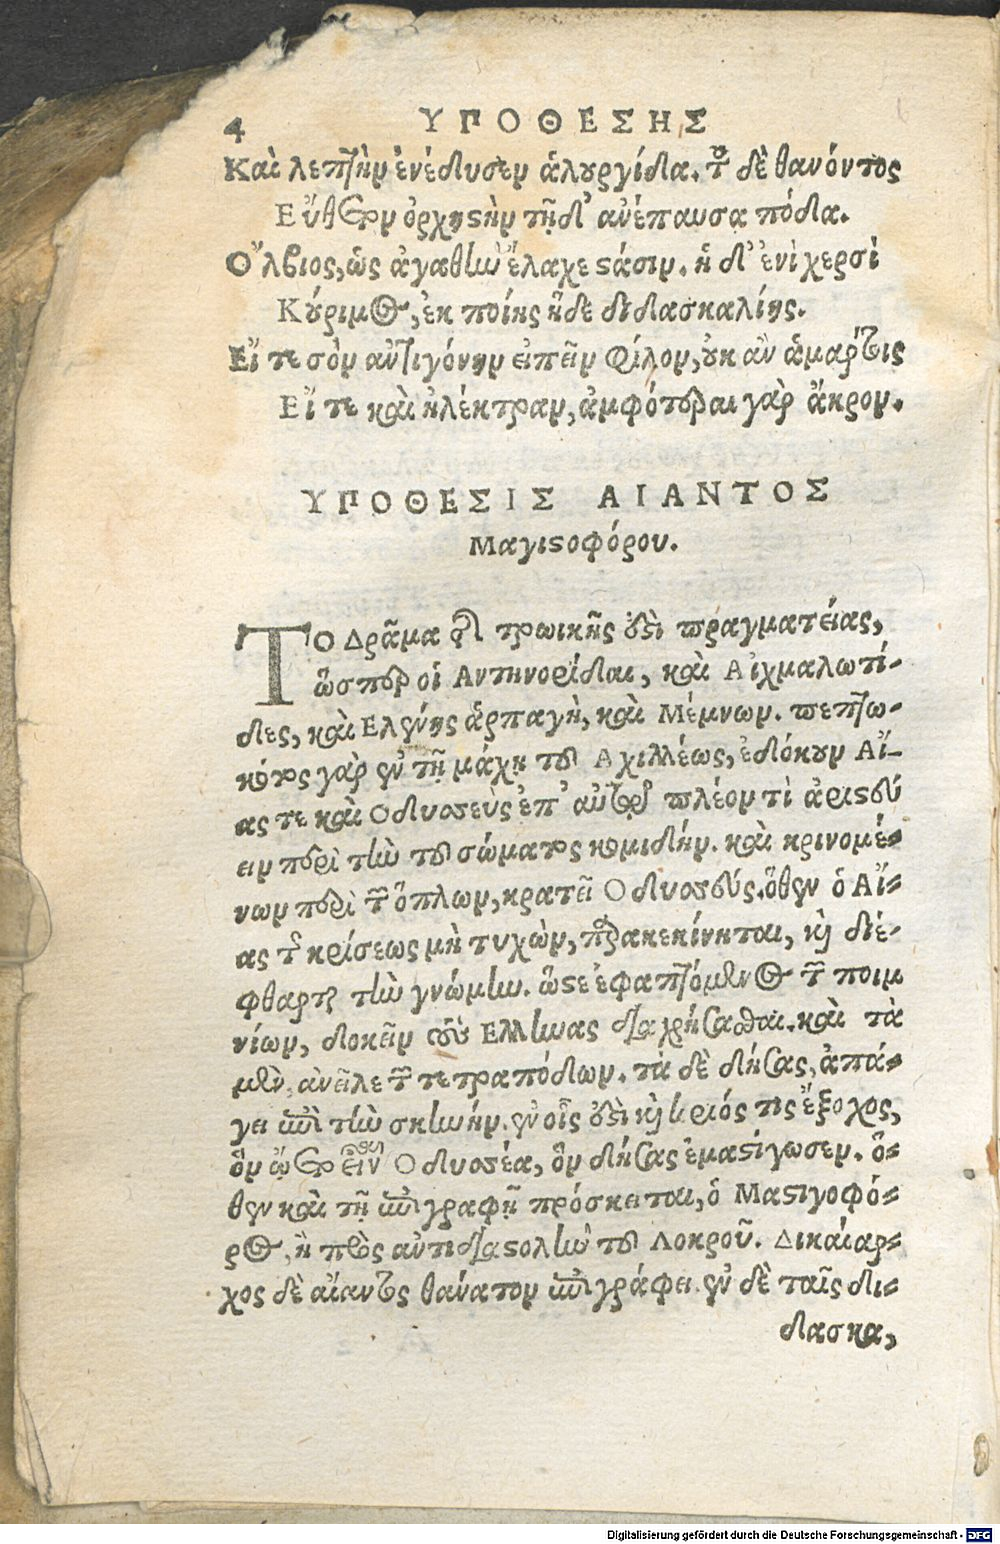 4 ΥΠΟΘΕΣΗΣ
Καὶ λεπτὴν ἐνέδυσεν ἁλουργίδα. τοῦ δὲ θανόντος
Εὔθετον ὀρχηστὴν τῇδ' ἀνέπαυσα πόδα.
Ὄλβιος, ὡς ἀγαθὴν ἔλαχε στάσιν. ἡ δ' ἐνὶ χερσὶ
Κούριμος, ἐκ ποίης ἥδε διδασκαλίης.
Εἴ τε σὸν ἀντιγόνην εἰπεῖν φίλον, οὐκ ἂν ἁμάρτοις
Εἴ τε καὶ ἠλέκτραν, ἀμφότεραι γὰρ ἄκρον.
ΥΠΟΘΕΣΙΣ ΑΙΑΝΤΟΣ
Μαγιστοφόρου.
ΤΟ Δρᾶμα τῆς τρωικῆς ἐστὶ πραγματείας,
ὥσπερ οἱ Αντηνορίδαι, καὶ Αἰχμαλωτί-
δες, καὶ Ελένης ἁρπαγὴ, καὶ Μέμνων. πεπτω-
κότος γὰρ ἐν τῇ μάχῃ τοῦ Αχιλλέως, ἐδόκουν Αἴ-
ας τε καὶ Οδυσσεὺς ἐπ' αὐτῷ πλέον τὶ ἀριστεύ
ειν περὶ τὴν τοῦ σώματος κομιδήν. καὶ κρινομέ-
νων περὶ τῶν ὅπλων, κρατεῖ Οδυσσεύς. ὅθεν ὁ Αἴ-
ας τῆς κρίσεως μὴ τυχὼν, παρακεκίνηται, καὶ διέ-
φθαρται τὴν γνώμην. ὥστε ἐφαπτόμενος τῶν ποιμ
νίων, δοκεῖν τοὺς Ελληνας διαχρήσασθαι. καὶ τὰ
μὲν ἀνεῖλε τῶν τετραπόδων. τὰ δὲ δήσας, ἀπά-
γει ἐπὶ τὴν σκηνήν. ἐν οἷς ἐστὶ καὶ κριός τις ἔξοχος,
ὃν ᾤετο εἶναι Οδυσσέα, ὃν δήσας ἐμαστίγωσεν. ὅ-
θεν καὶ τῇ ἐπιγραφῇ πρόσκειται, ὁ Μαστιγοφό-
ρος, ἢ πρὸς ἀντιδιαστολὴν τοῦ Λοκροῦ. Δικαίαρ-
χος δὲ αἴαντος θάνατον ἐπιγράφει. ἐν δὲ ταῖς δι-
δασκα,
Digitalisierung gefördert durch die Deutsche Forschungsgemeinschaft - DFG